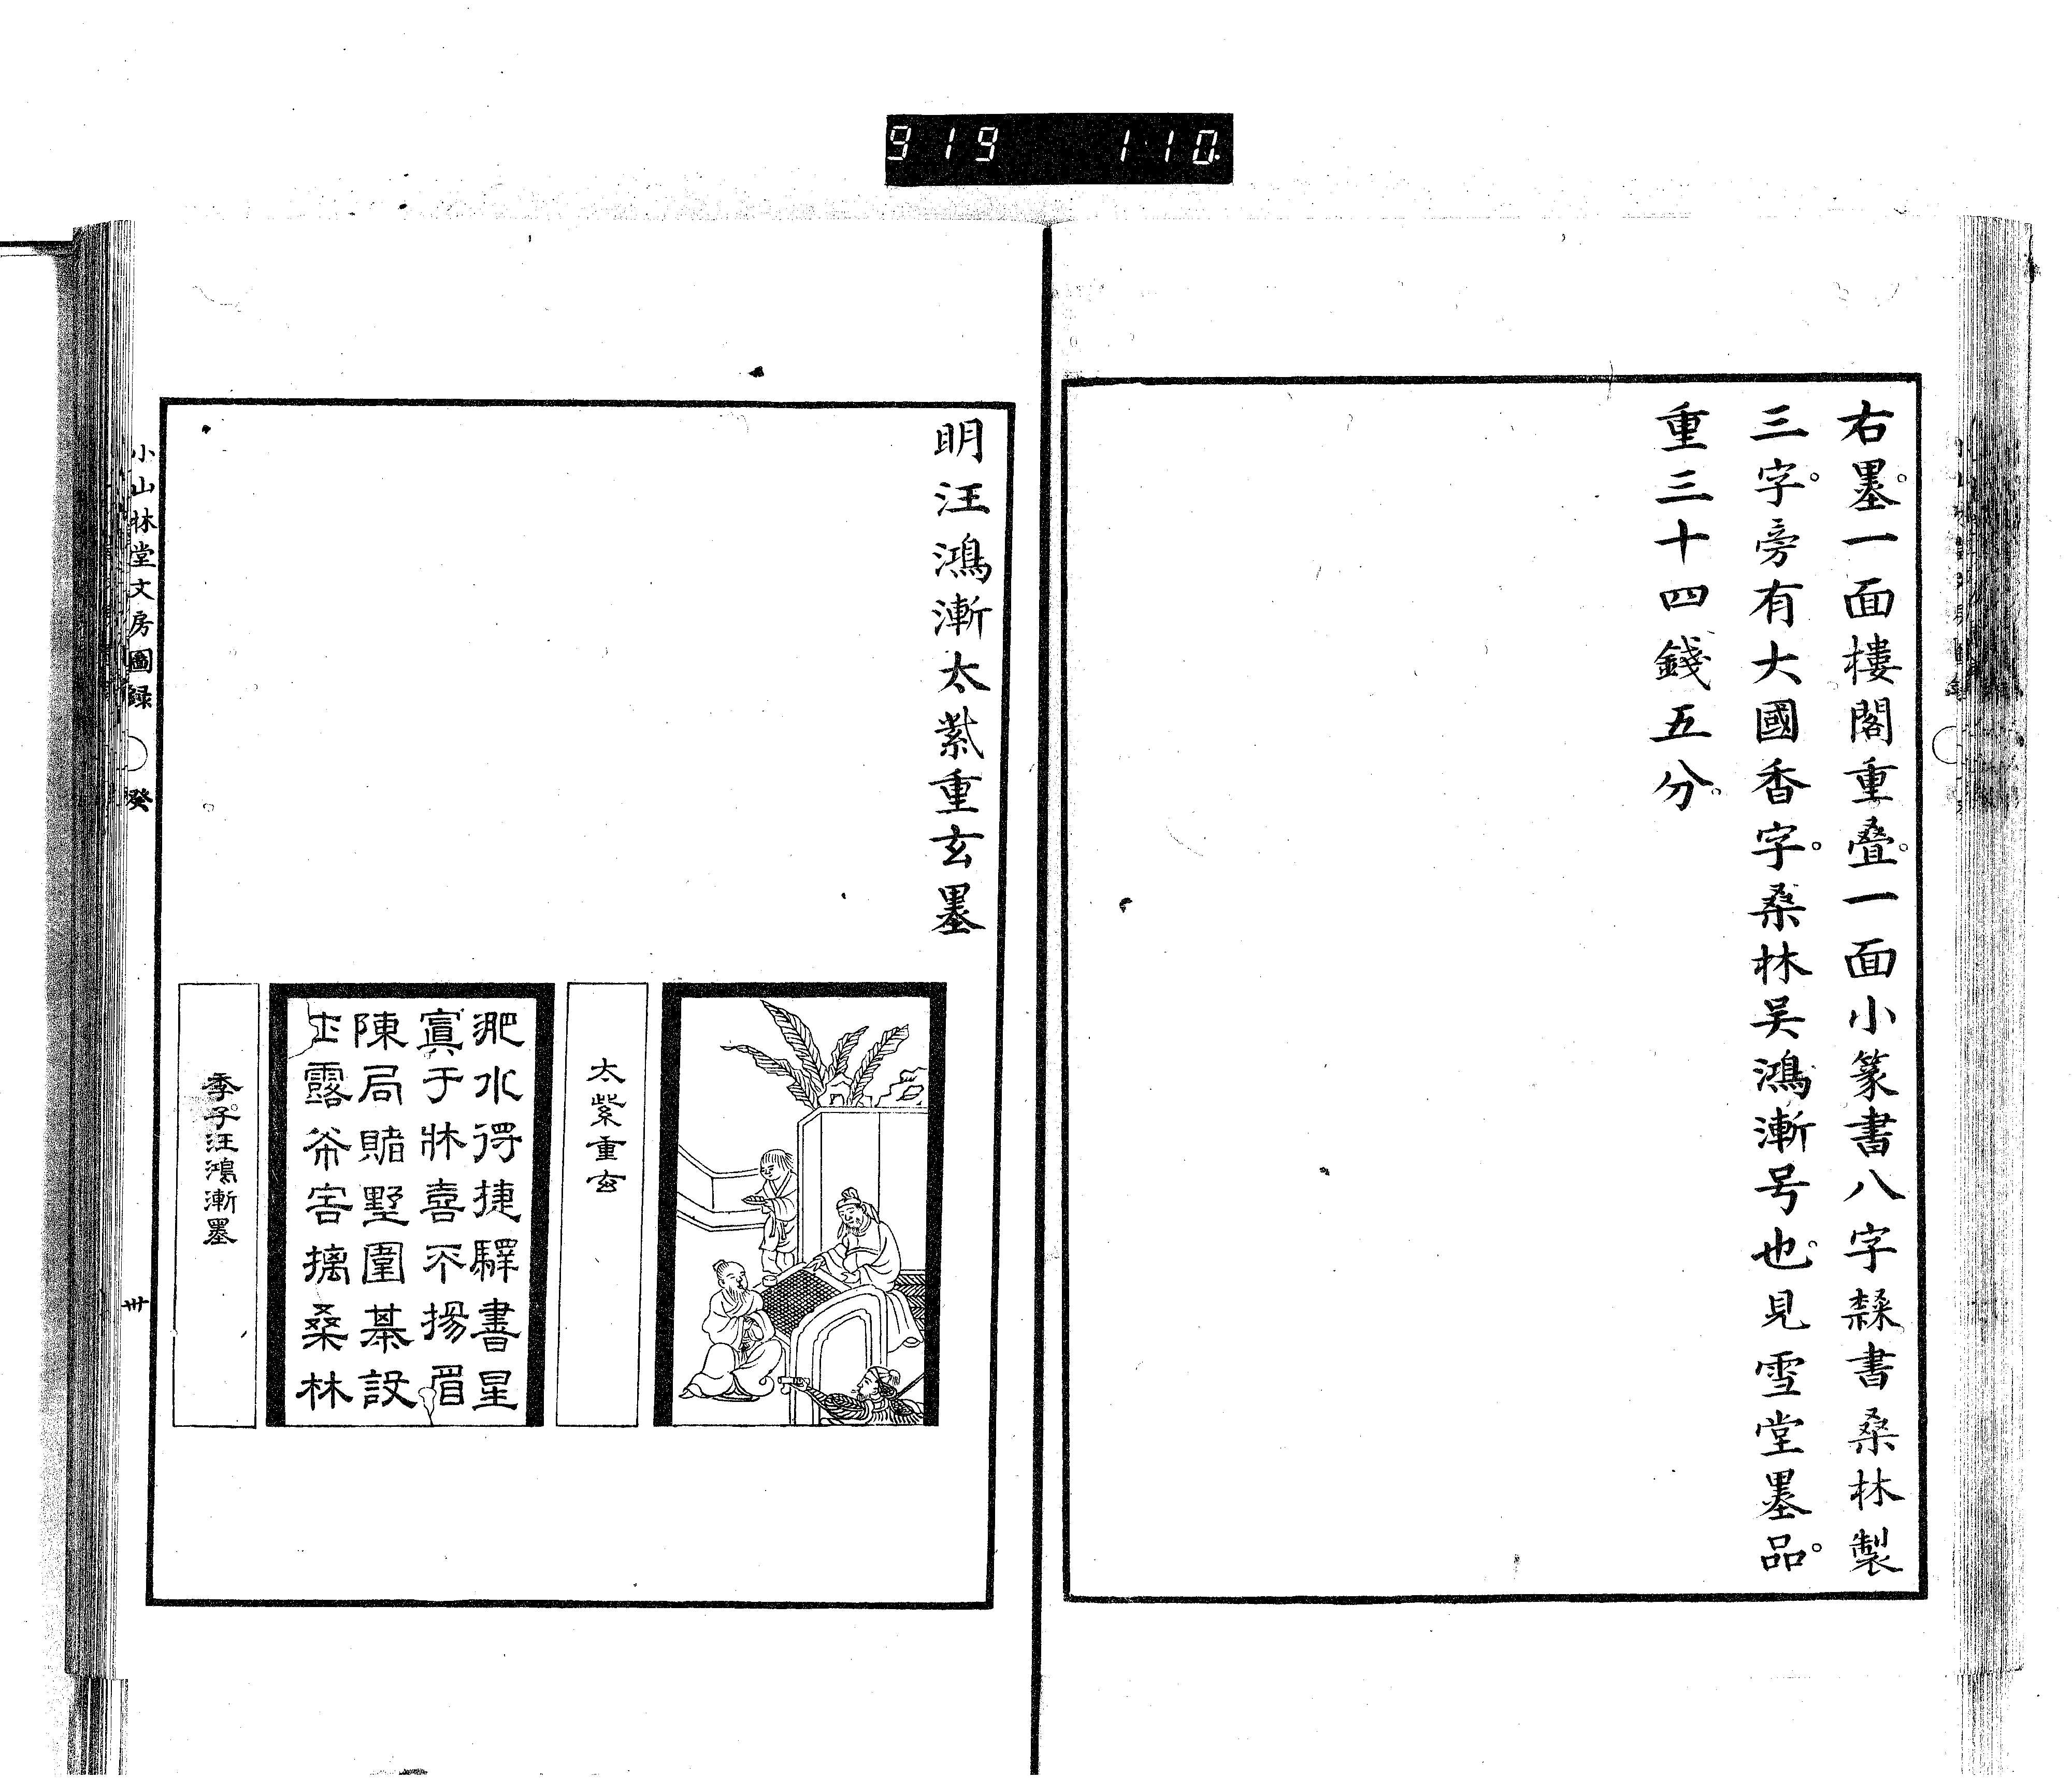 919 110.
右墨。一面樓閣重疊。一面小篆書八字隸書桑林製
三字。旁有大國香字。桑林吴鴻漸号也。見雪堂墨品。
重三十四錢五分。
明汪鴻漸太紫重玄墨
太紫重玄
淝水得捷驛書星
寘于牀喜不揚眉
陳局賭墅圍棊設
露
桑林
季子汪鴻漸墨
小山林堂文房圖録 癸 卅